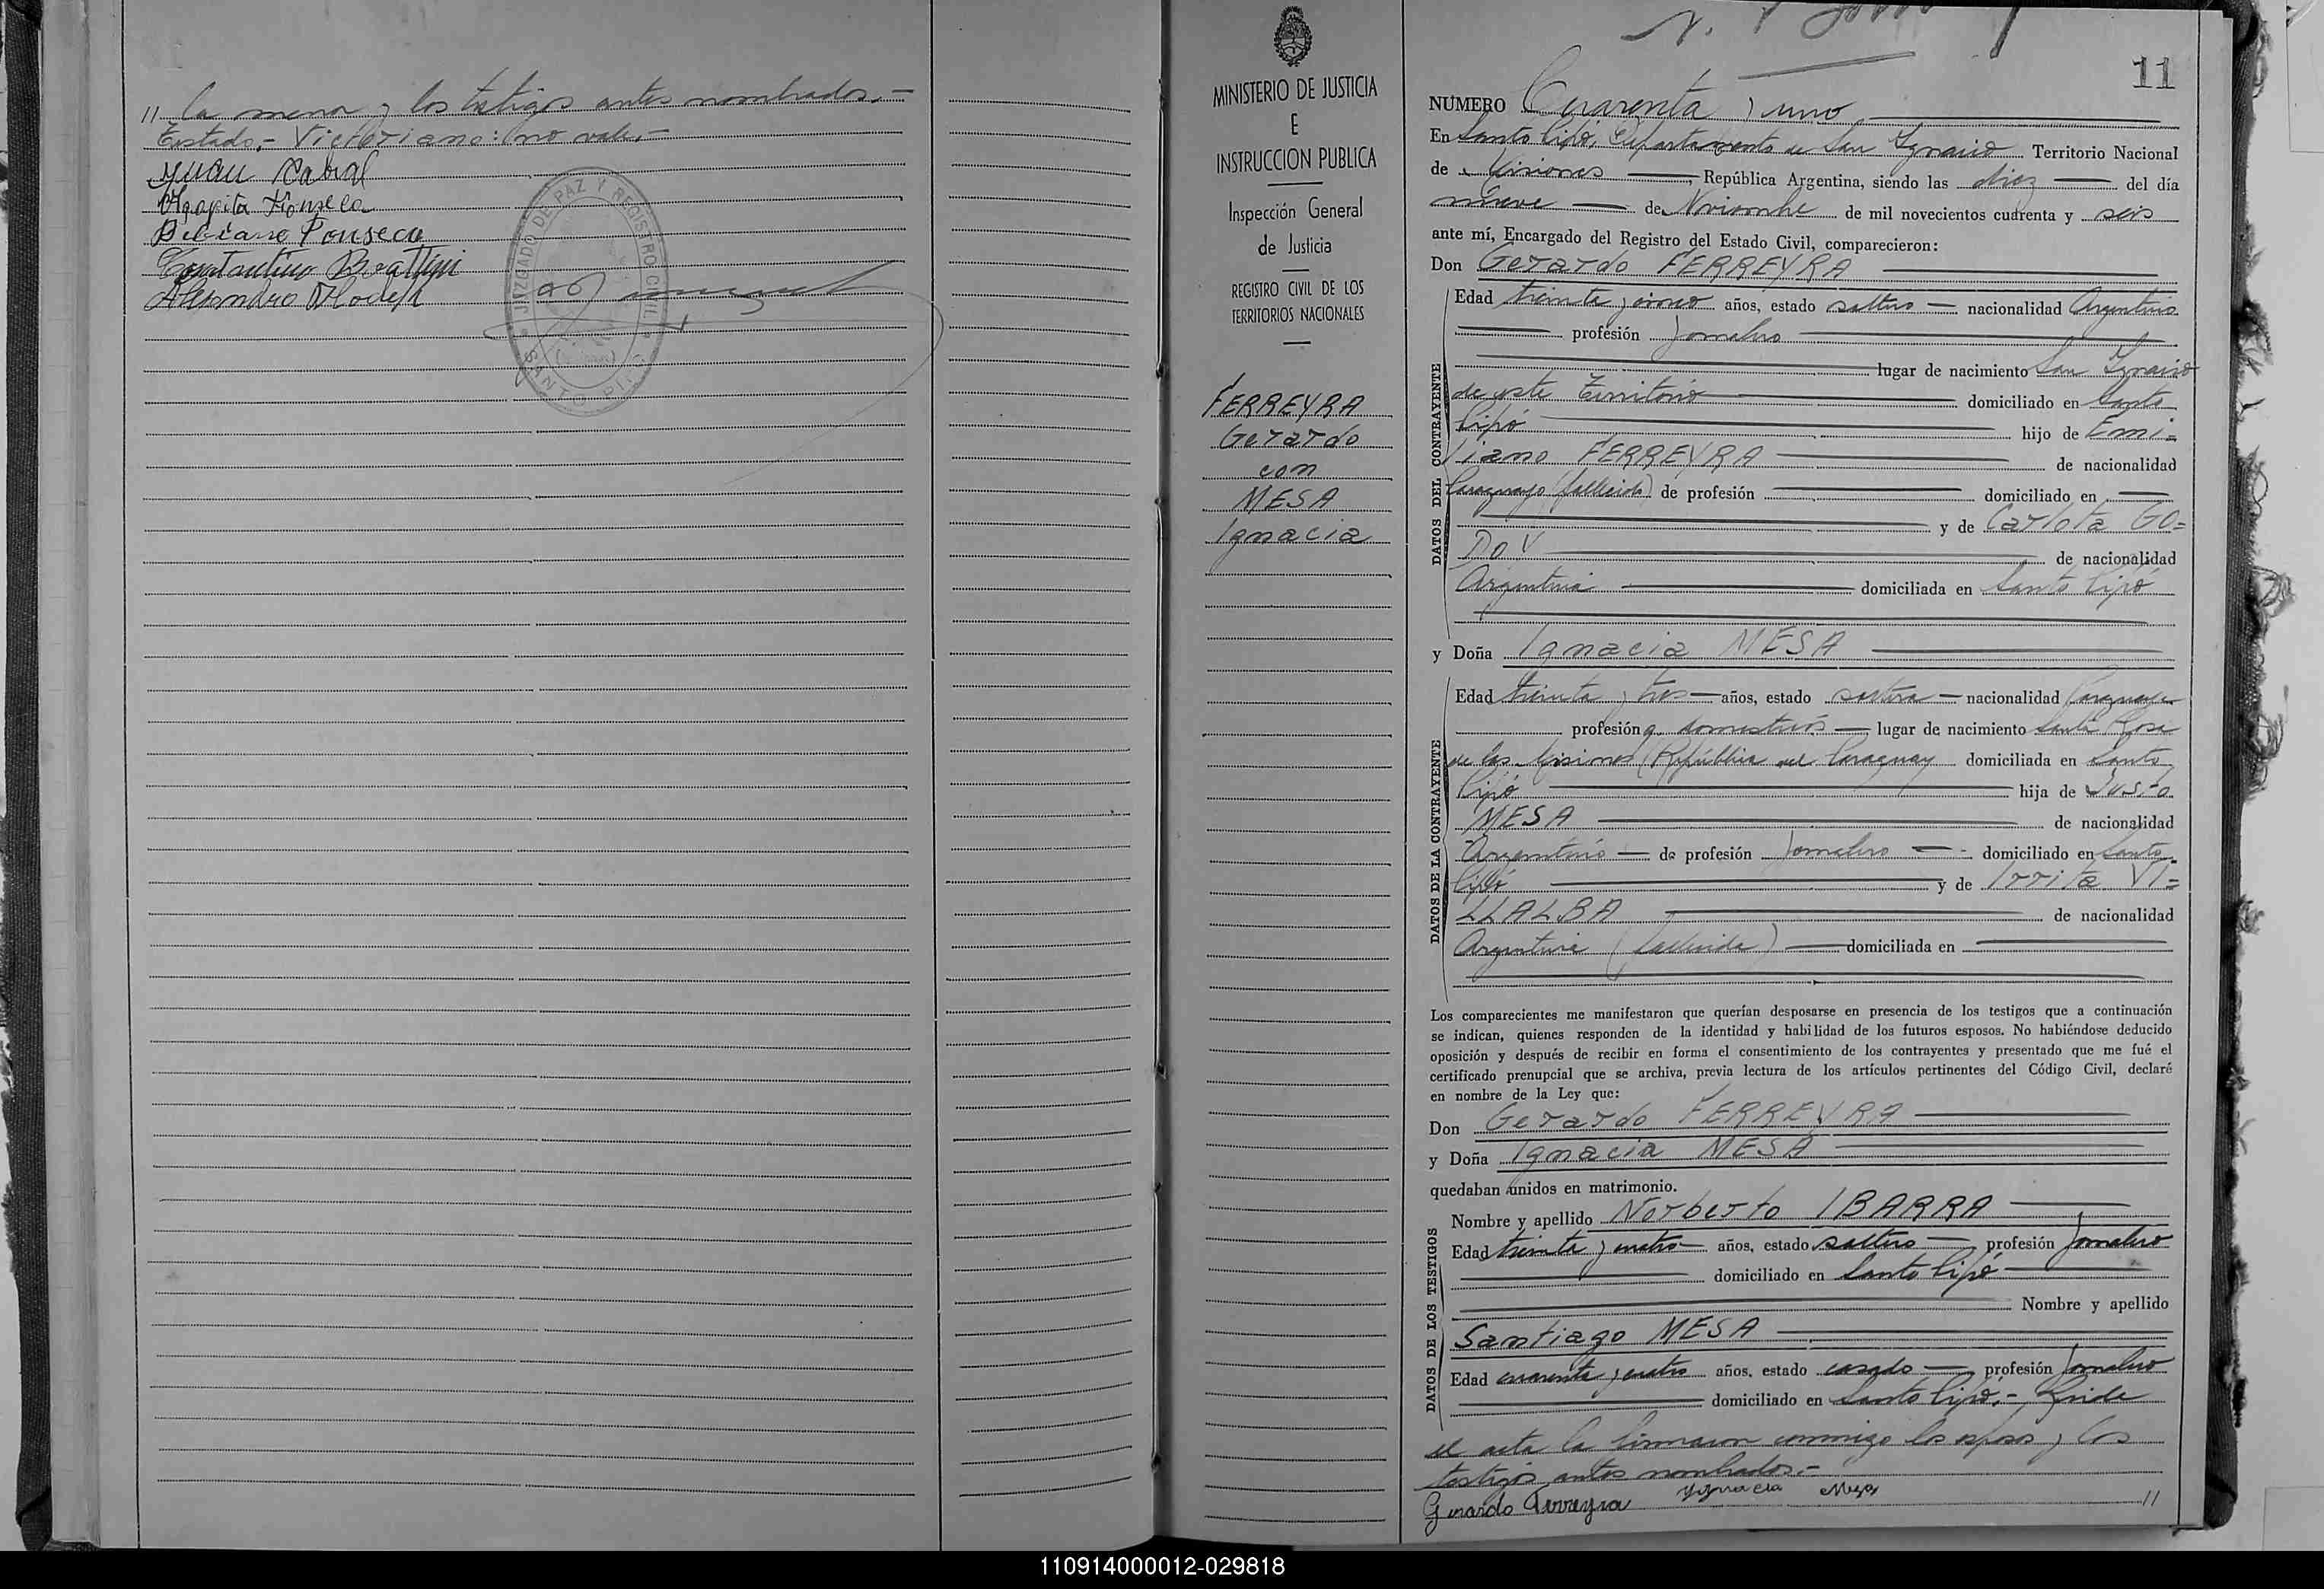 // la menor y los testigos antes nombrados.-
Testado.- Victoriano: no vale.-
Juan Cabral
Agapita Fonseca
Bibiano Fonseca
Constantino
JUZGADO DE PAZ Y REGISTRO CIVIL
SANTO PIPO
MINISTERIO DE JUSTICIA
E
INSTRUCCION PUBLICA
Inspección General
de Justicia
REGISTRO CIVIL DE LOS
TERRITORIOS NACIONALES
FERREYRA
Gerardo
con
MESA
Ignacia
11
NUMERO Cuarenta y uno
En Santo Pipó, Departamento de San Ignacio Territorio Nacional
de Misiones, República Argentina, siendo las diez del día
nueve de Noviembre de mil novecientos cuarenta y seis
ante mí, Encargado del Registro del Estado Civil, comparecieron:
Don Gerardo FERREYRA
DATOS DEL CONTRAYENTE
Edad treinta y cinco años, estado soltero nacionalidad Argentino
profesión Jornalero
lugar de nacimiento San Ignacio
de este Territorio domiciliado en Santo
Pipó hijo de Emi=
liano FERREYRA de nacionalidad
Paraguayo (fallecido) de profesión domiciliado en
y de Carlota GO=
DOY de nacionalidad
Argentina domiciliada en Santo Pipó
y Doña Ignacia MESA
DATOS DE LA CONTRAYENTE
Edad treinta y tres años, estado soltera nacionalidad Paraguaya
profesión q. domésticos lugar de nacimiento Santa Rosa
de las Misiones (República del Paraguay domiciliada en Santo
Pipó hija de Justo
MESA de nacionalidad
Argentino de profesión Jornalero domiciliado en Santo
Pipó y de Irrita VI=
LLALBA de nacionalidad
Argentina (fallecida) domiciliada en
Los comparecientes me manifestaron que querían desposarse en presencia de los testigos que a continuación
se indican, quienes responden de la identidad y habilidad de los futuros esposos. No habiéndose deducido
oposición y después de recibir en forma el consentimiento de los contrayentes y presentado que me fué el
certificado prenupcial que se archiva, previa lectura de los artículos pertinentes del Código Civil, declaré
en nombre de la Ley que:
Don Gerardo FERREYRA
y Doña Ignacia MESA
quedaban unidos en matrimonio.
DATOS DE LOS TESTIGOS
Nombre y apellido Norberto IBARRA
Edad treinta y cuatro años, estado soltero profesión Jornalero
domiciliado en Santo Pipó
Nombre y apellido
Santiago MESA
Edad cuarenta y cuatro años, estado casado profesión Jornalero
domiciliado en Santo Pipó.- Leida
el acta la firmaron conmigo los esposos y los
testigos antes nombrados.-
Gerardo Ferreyra Ygnacia Meza //
110914000012-029818